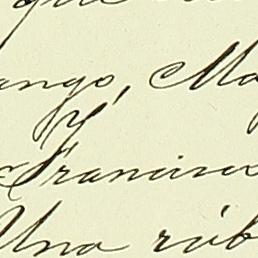 que
ango, Ma
y
Francisco
Una rúb